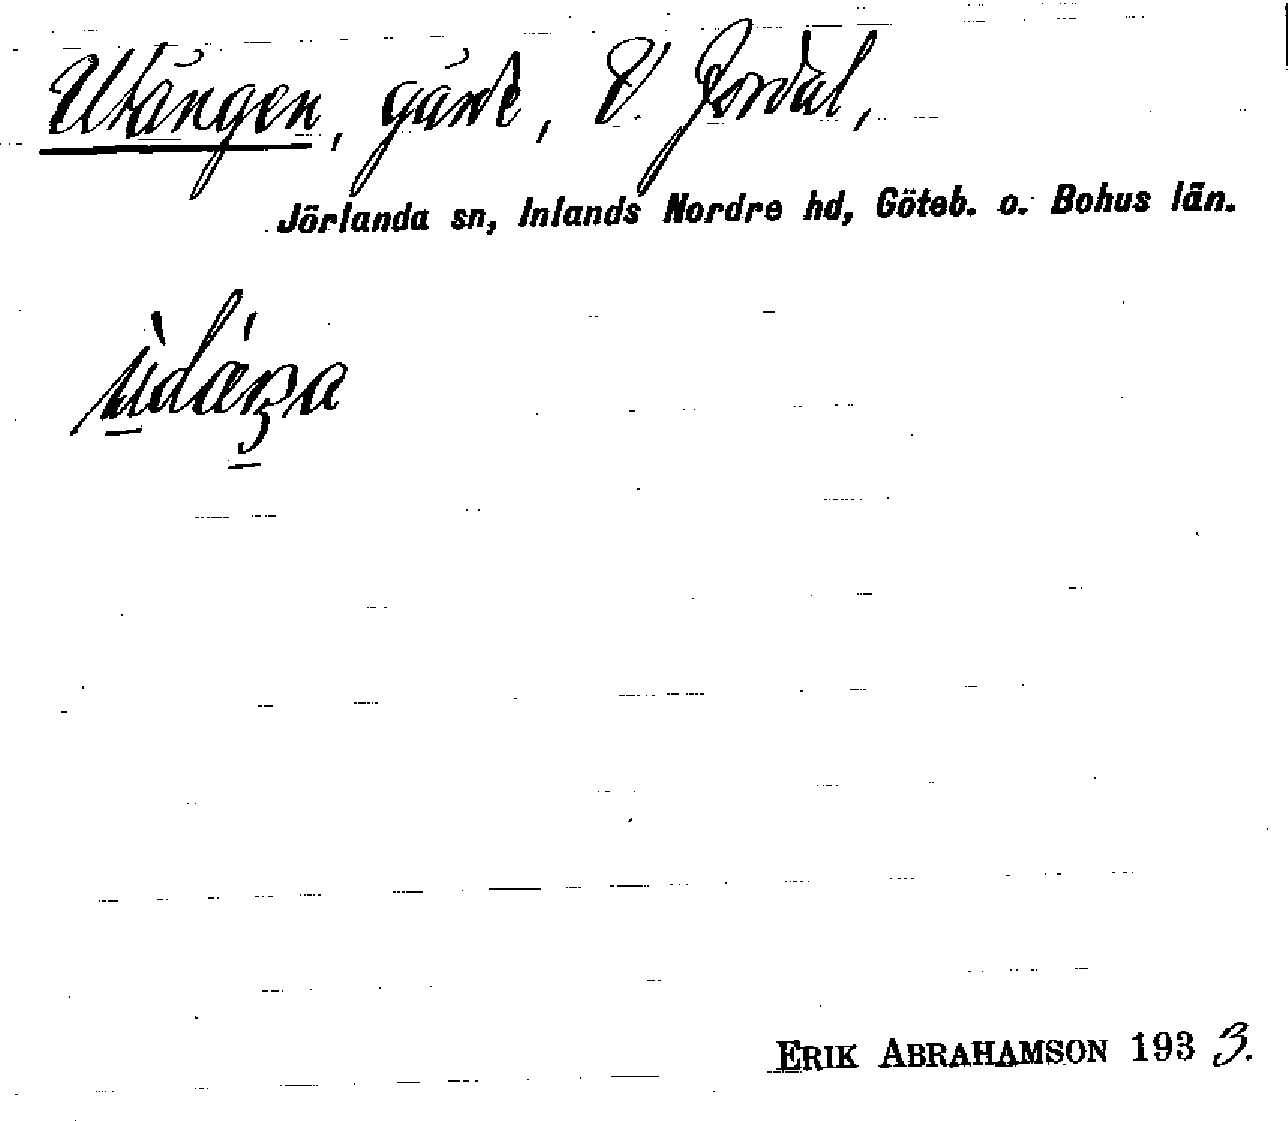 Utängen, gärde, V. Jordal,
Jörlanda sn, Inlands Nordre hd, Göteb. o. Bohus län.
ERIK ABRAHAMSON 1933.